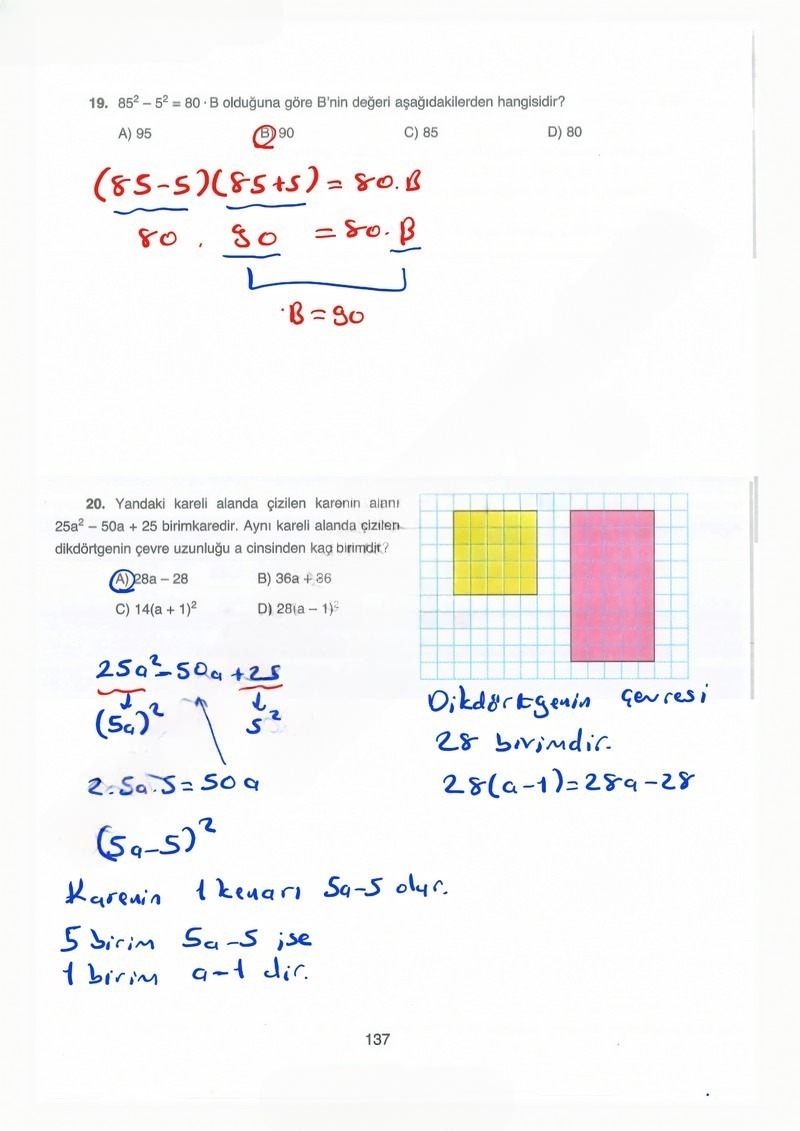 19. 85² – 5² = 80 · B olduğuna göre B'nin değeri aşağıdakilerden hangisidir?
A) 95 B) 90 C) 85 D) 80
(85-5)(85+5) = 80.B
80 . 90 = 80.B
B = 90
20. Yandaki kareli alanda çizilen karenin alanı
25a² – 50a + 25 birimkaredir. Aynı kareli alanda çizilen
dikdörtgenin çevre uzunluğu a cinsinden kaç birimdir?
A) 28a – 28 B) 36a + 36
C) 14(a + 1)² D) 28(a – 1)²
25a²-50a+25
(5a)² 5²
2.5a.5=50a
(5a-5)²
Karenin 1 kenarı 5a-5 olur.
5 birim 5a-5 ise
1 birim a-1 dir.
Dikdörtgenin çevresi
28 birimdir.
28(a-1)=28a-28
137